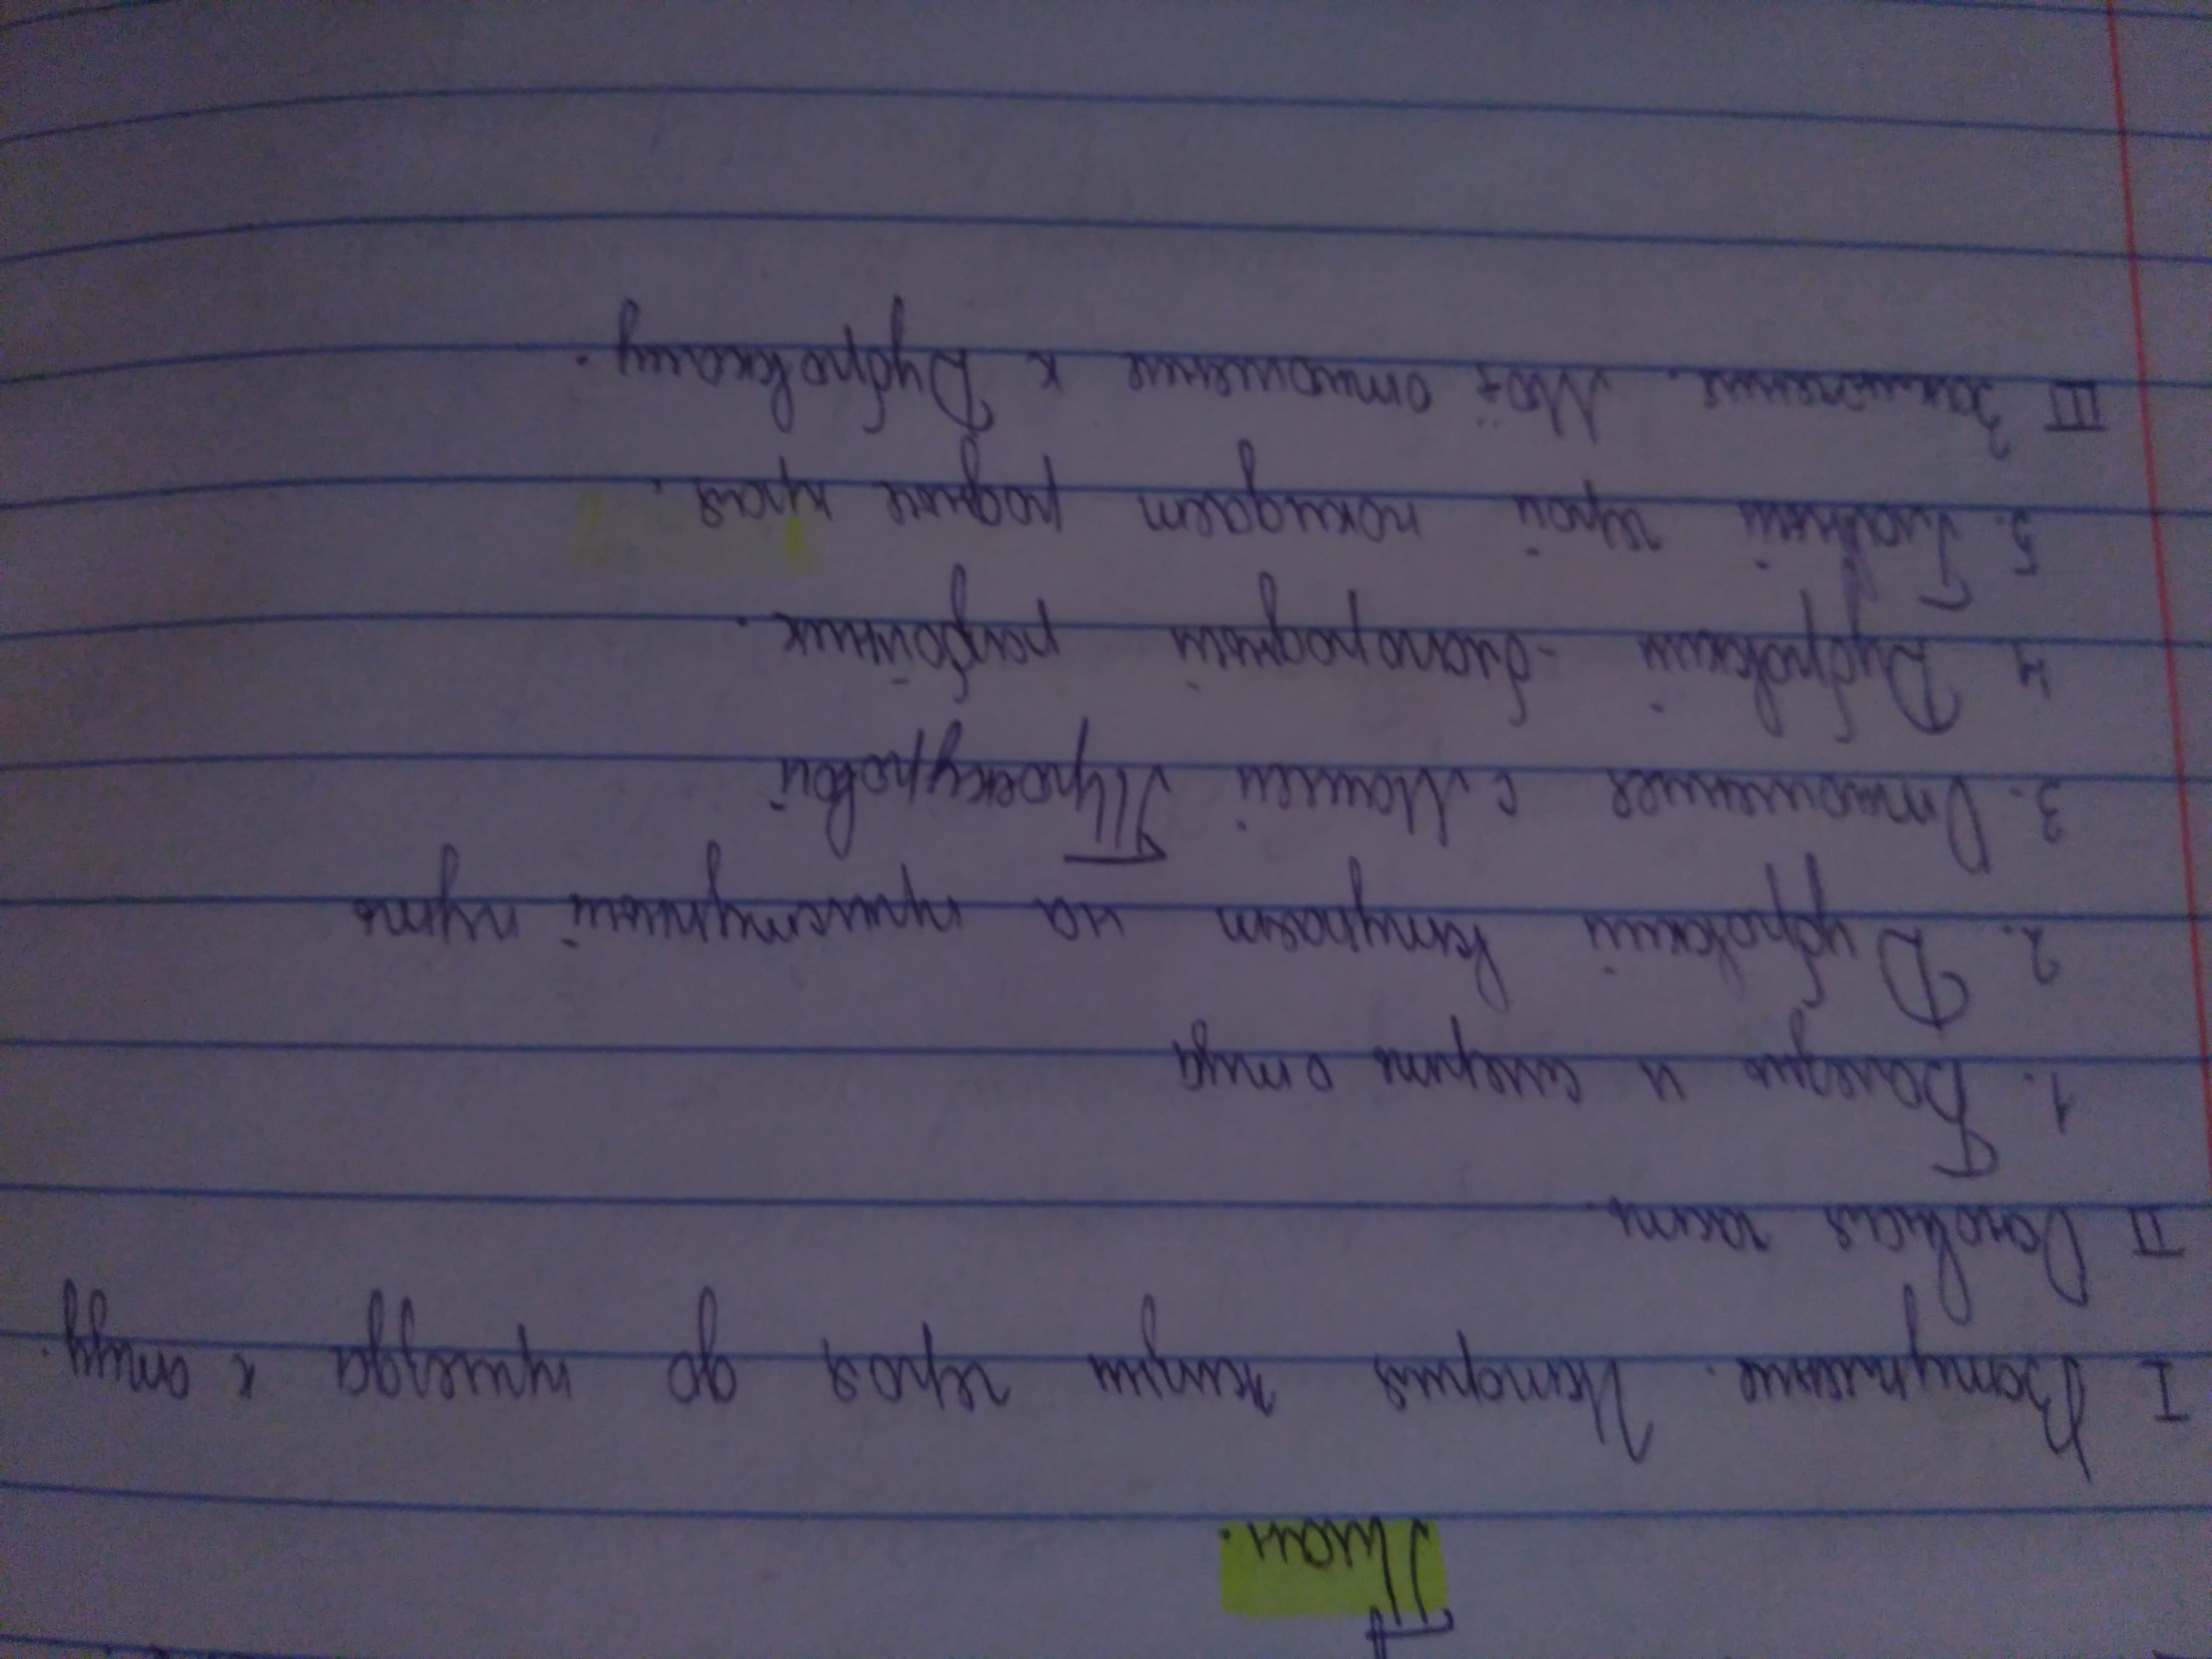 План.
I Вступление. История жизни героя до приезда к отцу.
II Основная часть.
1. Болезнь и смерть отца
2. Дубровский вступает на преступный путь
3. Отношения с Машей Троекуровой
4 Дубровский - благородный разбойник.
5. Главный герой покидает родные края.
III Заключение. Моё отношение к Дубровскому.